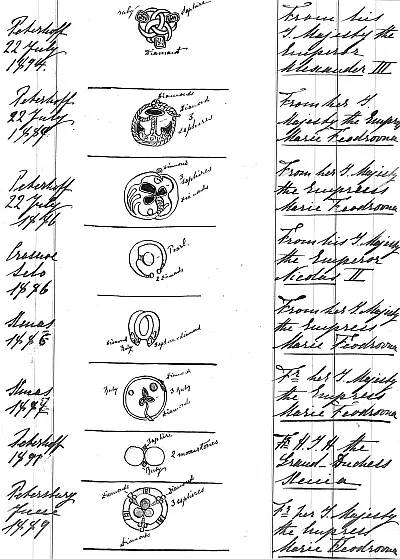 Peterhoff
22 July
1894.
Ruby
Saphire
Diamant
From his
I. Majesty the
Emperor
Alexander III
Peterhoff
22 July
Diamonds
Diamond
3
saphires
From her I.
Majesty the Empress
Marie Feodrovna
Peterhoff
22 July
1896
Diamond
3 saphires
From her I. Majesty
the Empress
Marie Feodrovna
Crasnoe
Selo
1896
Pearl.
2 diamonds
From his I. Majesty
the Emperor
Nicolas II
Xmas
1886
Diamond
Ruby
From her I. Majesty
the Empress
Marie Feodrovna
Xmas
Ruby
Diamond
3 Ruby
Diamonds
Fr her I. Majesty
the Empress
Marie Feodrovna
Peterhoff
Saphire
2 moonstones
Ruby
Fr H.I.H. the
Grand Duchess
Petersburg
1889
Diamonds
Diamant
3 saphires
Diamonds
Fr her I. Majesty
the Empress
Marie Feodrovna